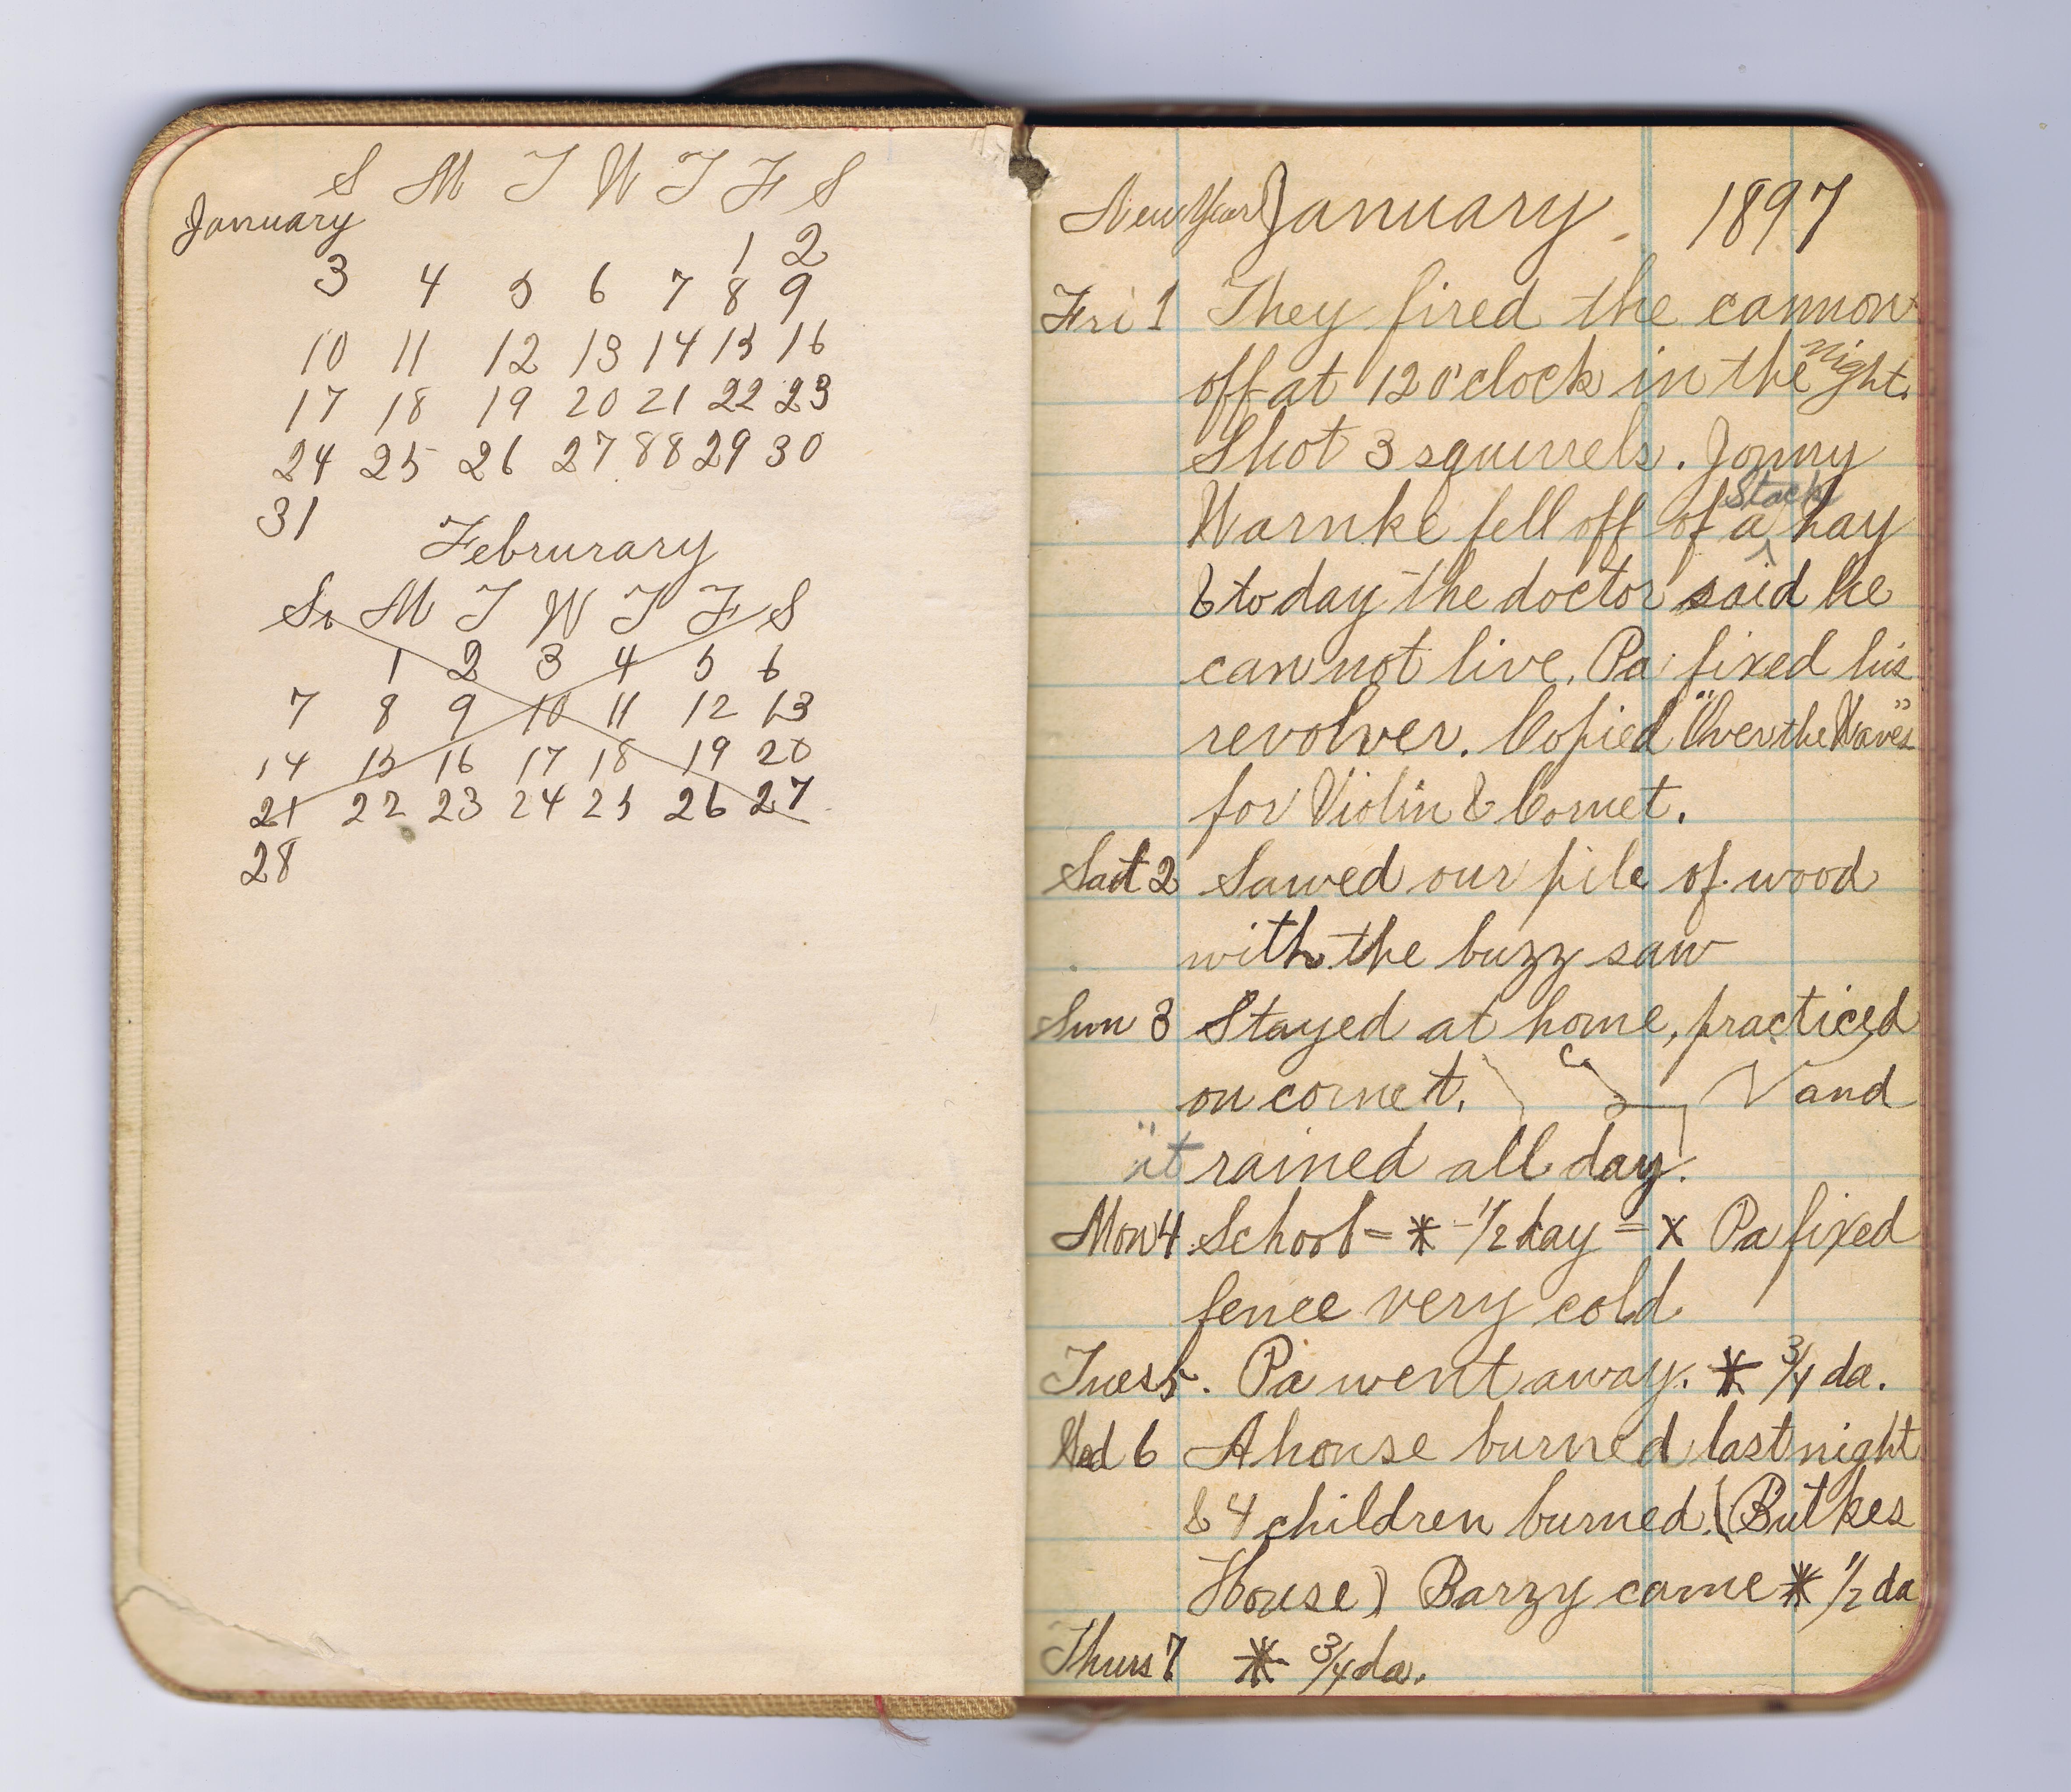 S M T W T F S
January
1 2
3 4 5 6 7 8 9
10 11 12 13 14 15 16
17 18 19 20 21 22 23
24 25 26 27 88 29 30
31
Februrary
S M T W T F S
1 2 3 4 5 6
7 8 9 10 11 12 13
14 15 16 17 18 19 20
21 22 23 24 25 26 27
28
New Years January. 1897
Fri 1 They fired the cannon
off at 12 o'clock in the night.
Shot 3 squirrels. Jonny
Warnke fell off of a stack hay
& to day the doctor said he
can not live. Pa fixed his
revolver. Copied "Over the Waves"
for Violin & Cornet.
Sat 2 Sawed our pile of wood
with the buzz saw
Sun 3 Stayed at home, practiced
on cornet. and
it rained all day.
Mon 4 School = * - 1/2 day = x Pa fixed
fence very cold.
Tues 5. Pa went away. * 3/4 da.
Wed 6 A house burned last night
& 4 children burned. (Butkes
House) Barzy came * 1/2 da
Thurs 7 * 3/4 da.